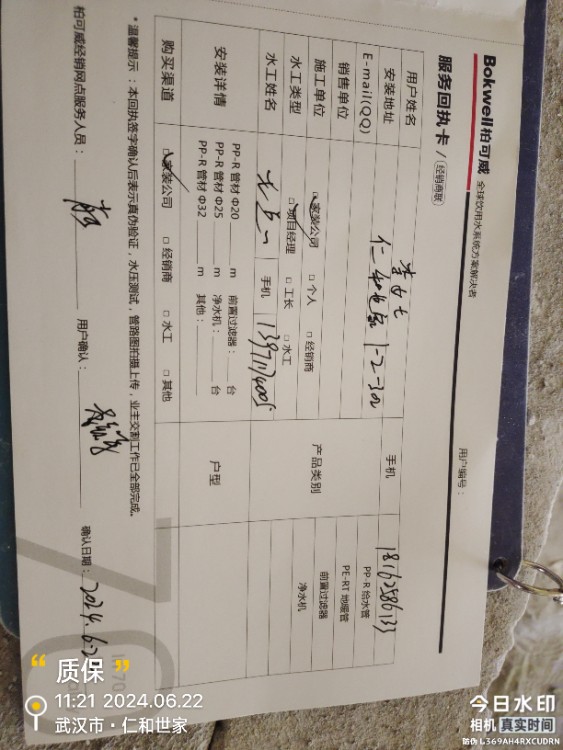 Bokwell柏可威 全球饮用水系统方案解决者
服务回执卡 / 经销商联
用户编号：
用户姓名 李女士 手机 18163586733
安装地址 仁和世家 1-2-302
E-mail(QQ)
销售单位
施工单位 ☑家装公司 □个人 □经销商
水工类型 ☑项目经理 □工长 □水工
水工姓名 手机
产品类别 PP-R 给水管
PE-RT 地暖管
前置过滤器
净水机
安装详情 PP-R 管材 Φ20 m 前置过滤器： 台
PP-R 管材 Φ25 m 净水机： 台
PP-R 管材 Φ32 m 其他：
户型
购买渠道 ☑家装公司 □经销商 □水工 □其他
*温馨提示：本回执签字确认后表示真伪验证，水压测试，管路图拍摄上传，业主交割工作已全部完成。
柏可威经销网点服务人员： 用户确认： 确认日期：2024.6.
“质保”
11:21 2024.06.22
武汉市·仁和世家
今日水印
相机 真实时间
防伪 L369AH4RXCUDRN